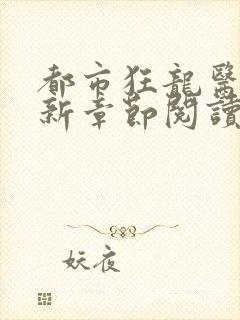 都市狂龍醫
新章節閱讀
妖夜